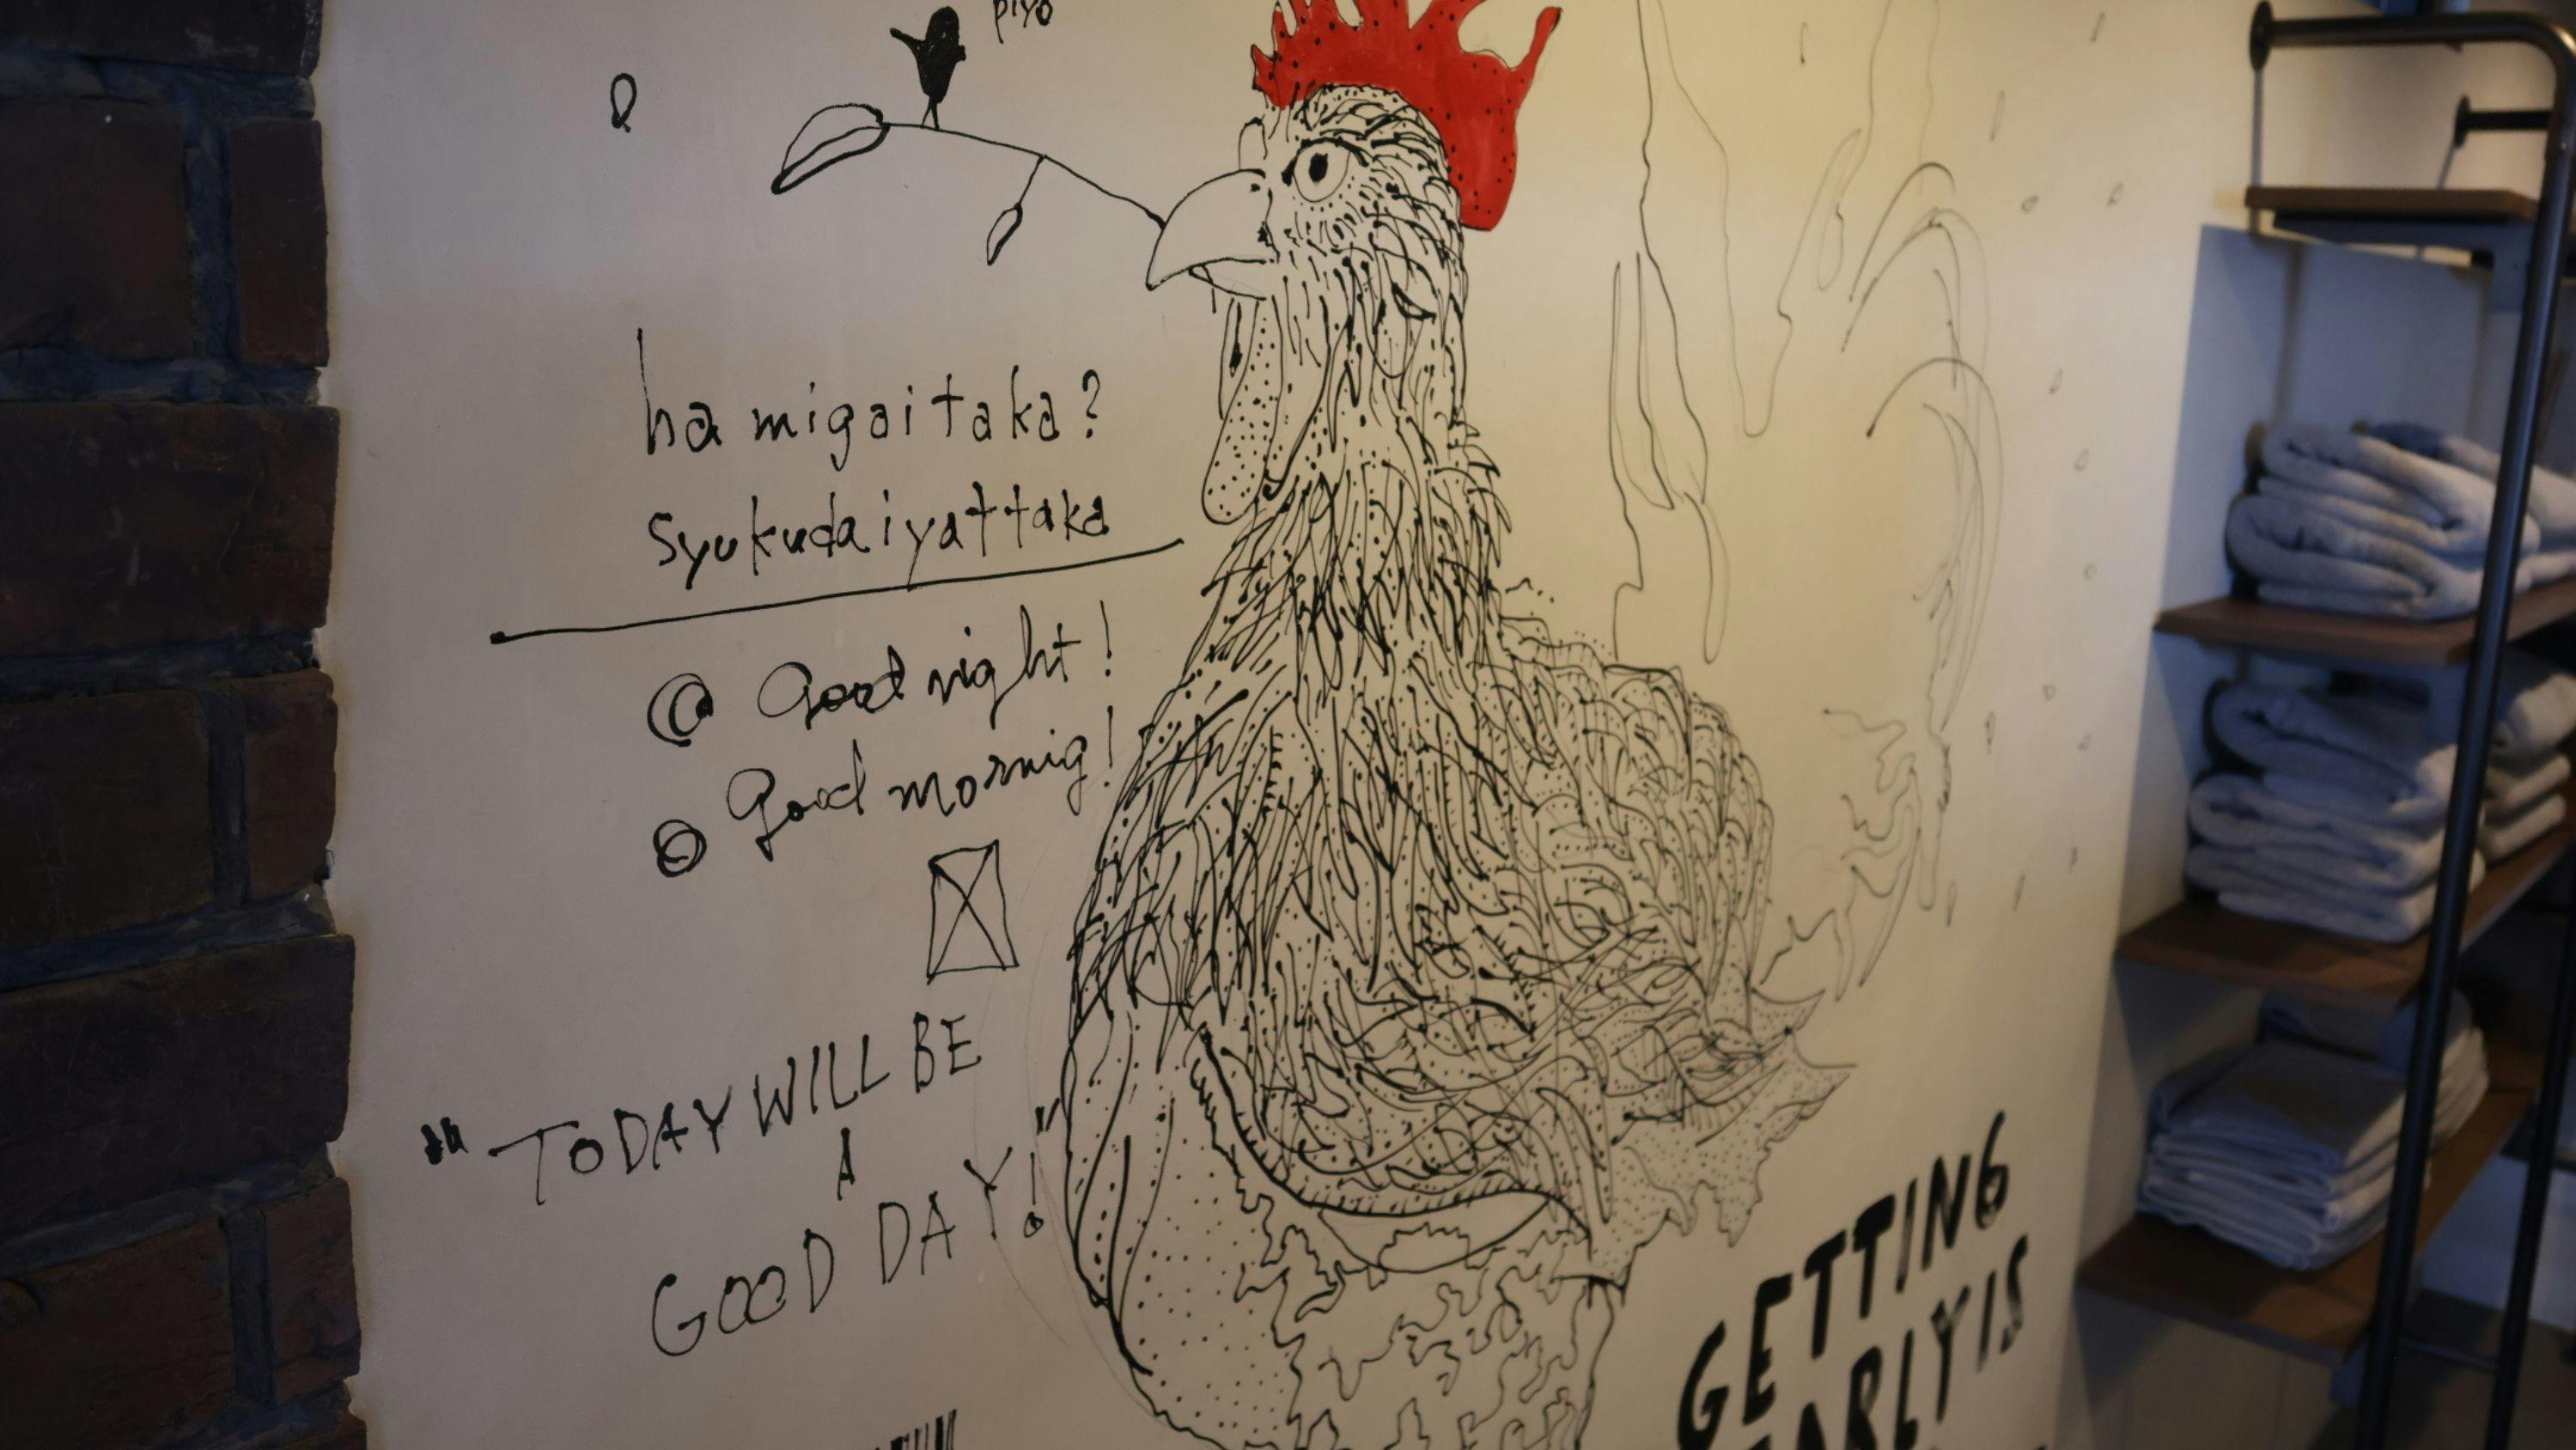 piyo
ha migaitaka?
syukudaiyattaka
@ Good night!
Good mornig!
"TODAY WILL BE
A
GOOD DAY!"
GETTING
EARLY IS